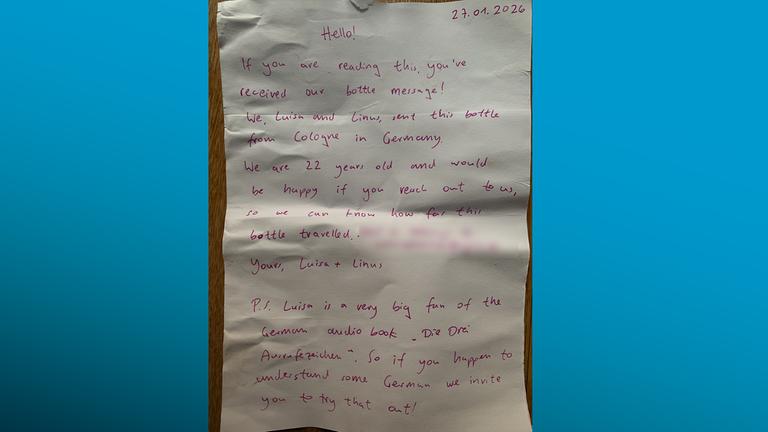 27.01.2026
Hello!
If you are reading this, you've
received our bottle message!
We, Luisa and Linus, sent this bottle
from Cologne in Germany.
We are 22 years old and would
be happy if you reach out to us,
so we can know how far this
bottle travelled.
Yours, Luisa + Linus
P.S. Luisa is a very big fan of the
German audio book „Die Drei
Ausrufezeichen". So if you happen to
understand some German we invite
you to try that out!